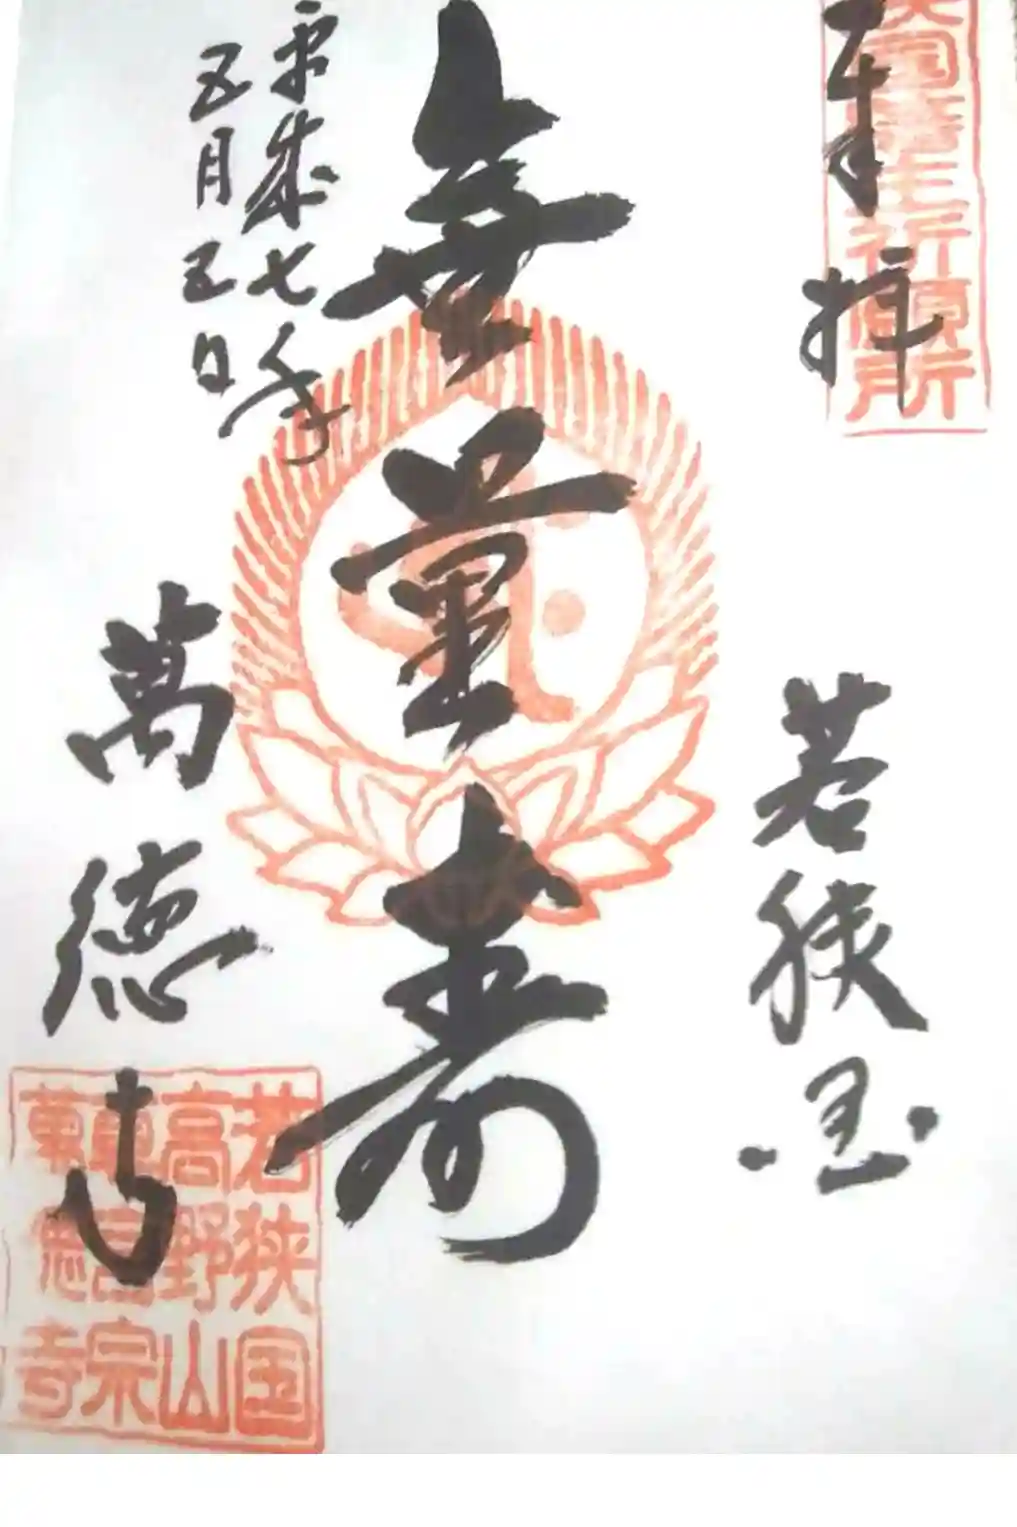 奉拝
国藩主祈願所
若狭国
無量寿
平成七年
五月五日
萬徳寺
若狭国
高野山
真言宗
萬徳寺